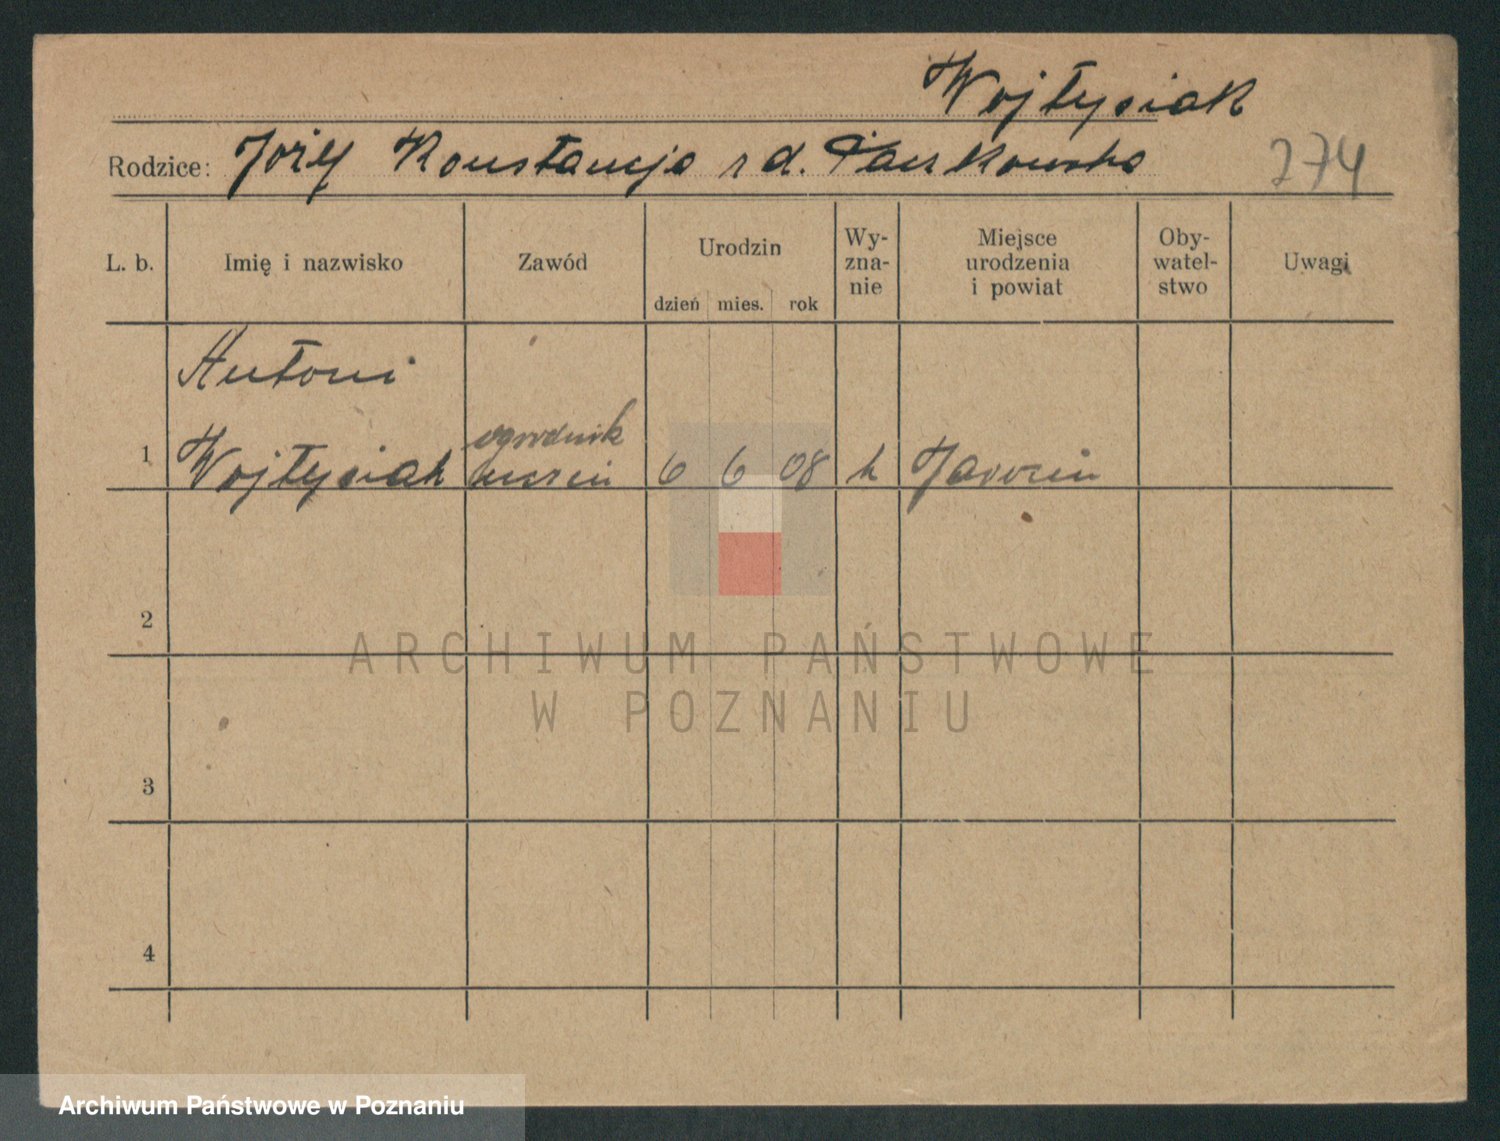 Wojtysiak
Rodzice: Józef Konstancja z d. Paczkowska
274
L. b. Imię i nazwisko Zawód Urodzin dzień mies. rok Wy-zna-nie Miejsce urodzenia i powiat Oby-watel-stwo Uwagi
Antoni
ogrodnik
1 Wojtysiak uczeń 6 6 08 k
2
ARCHIWUM PAŃSTWOWE
W POZNANIU
3
4
Archiwum Państwowe w Poznaniu